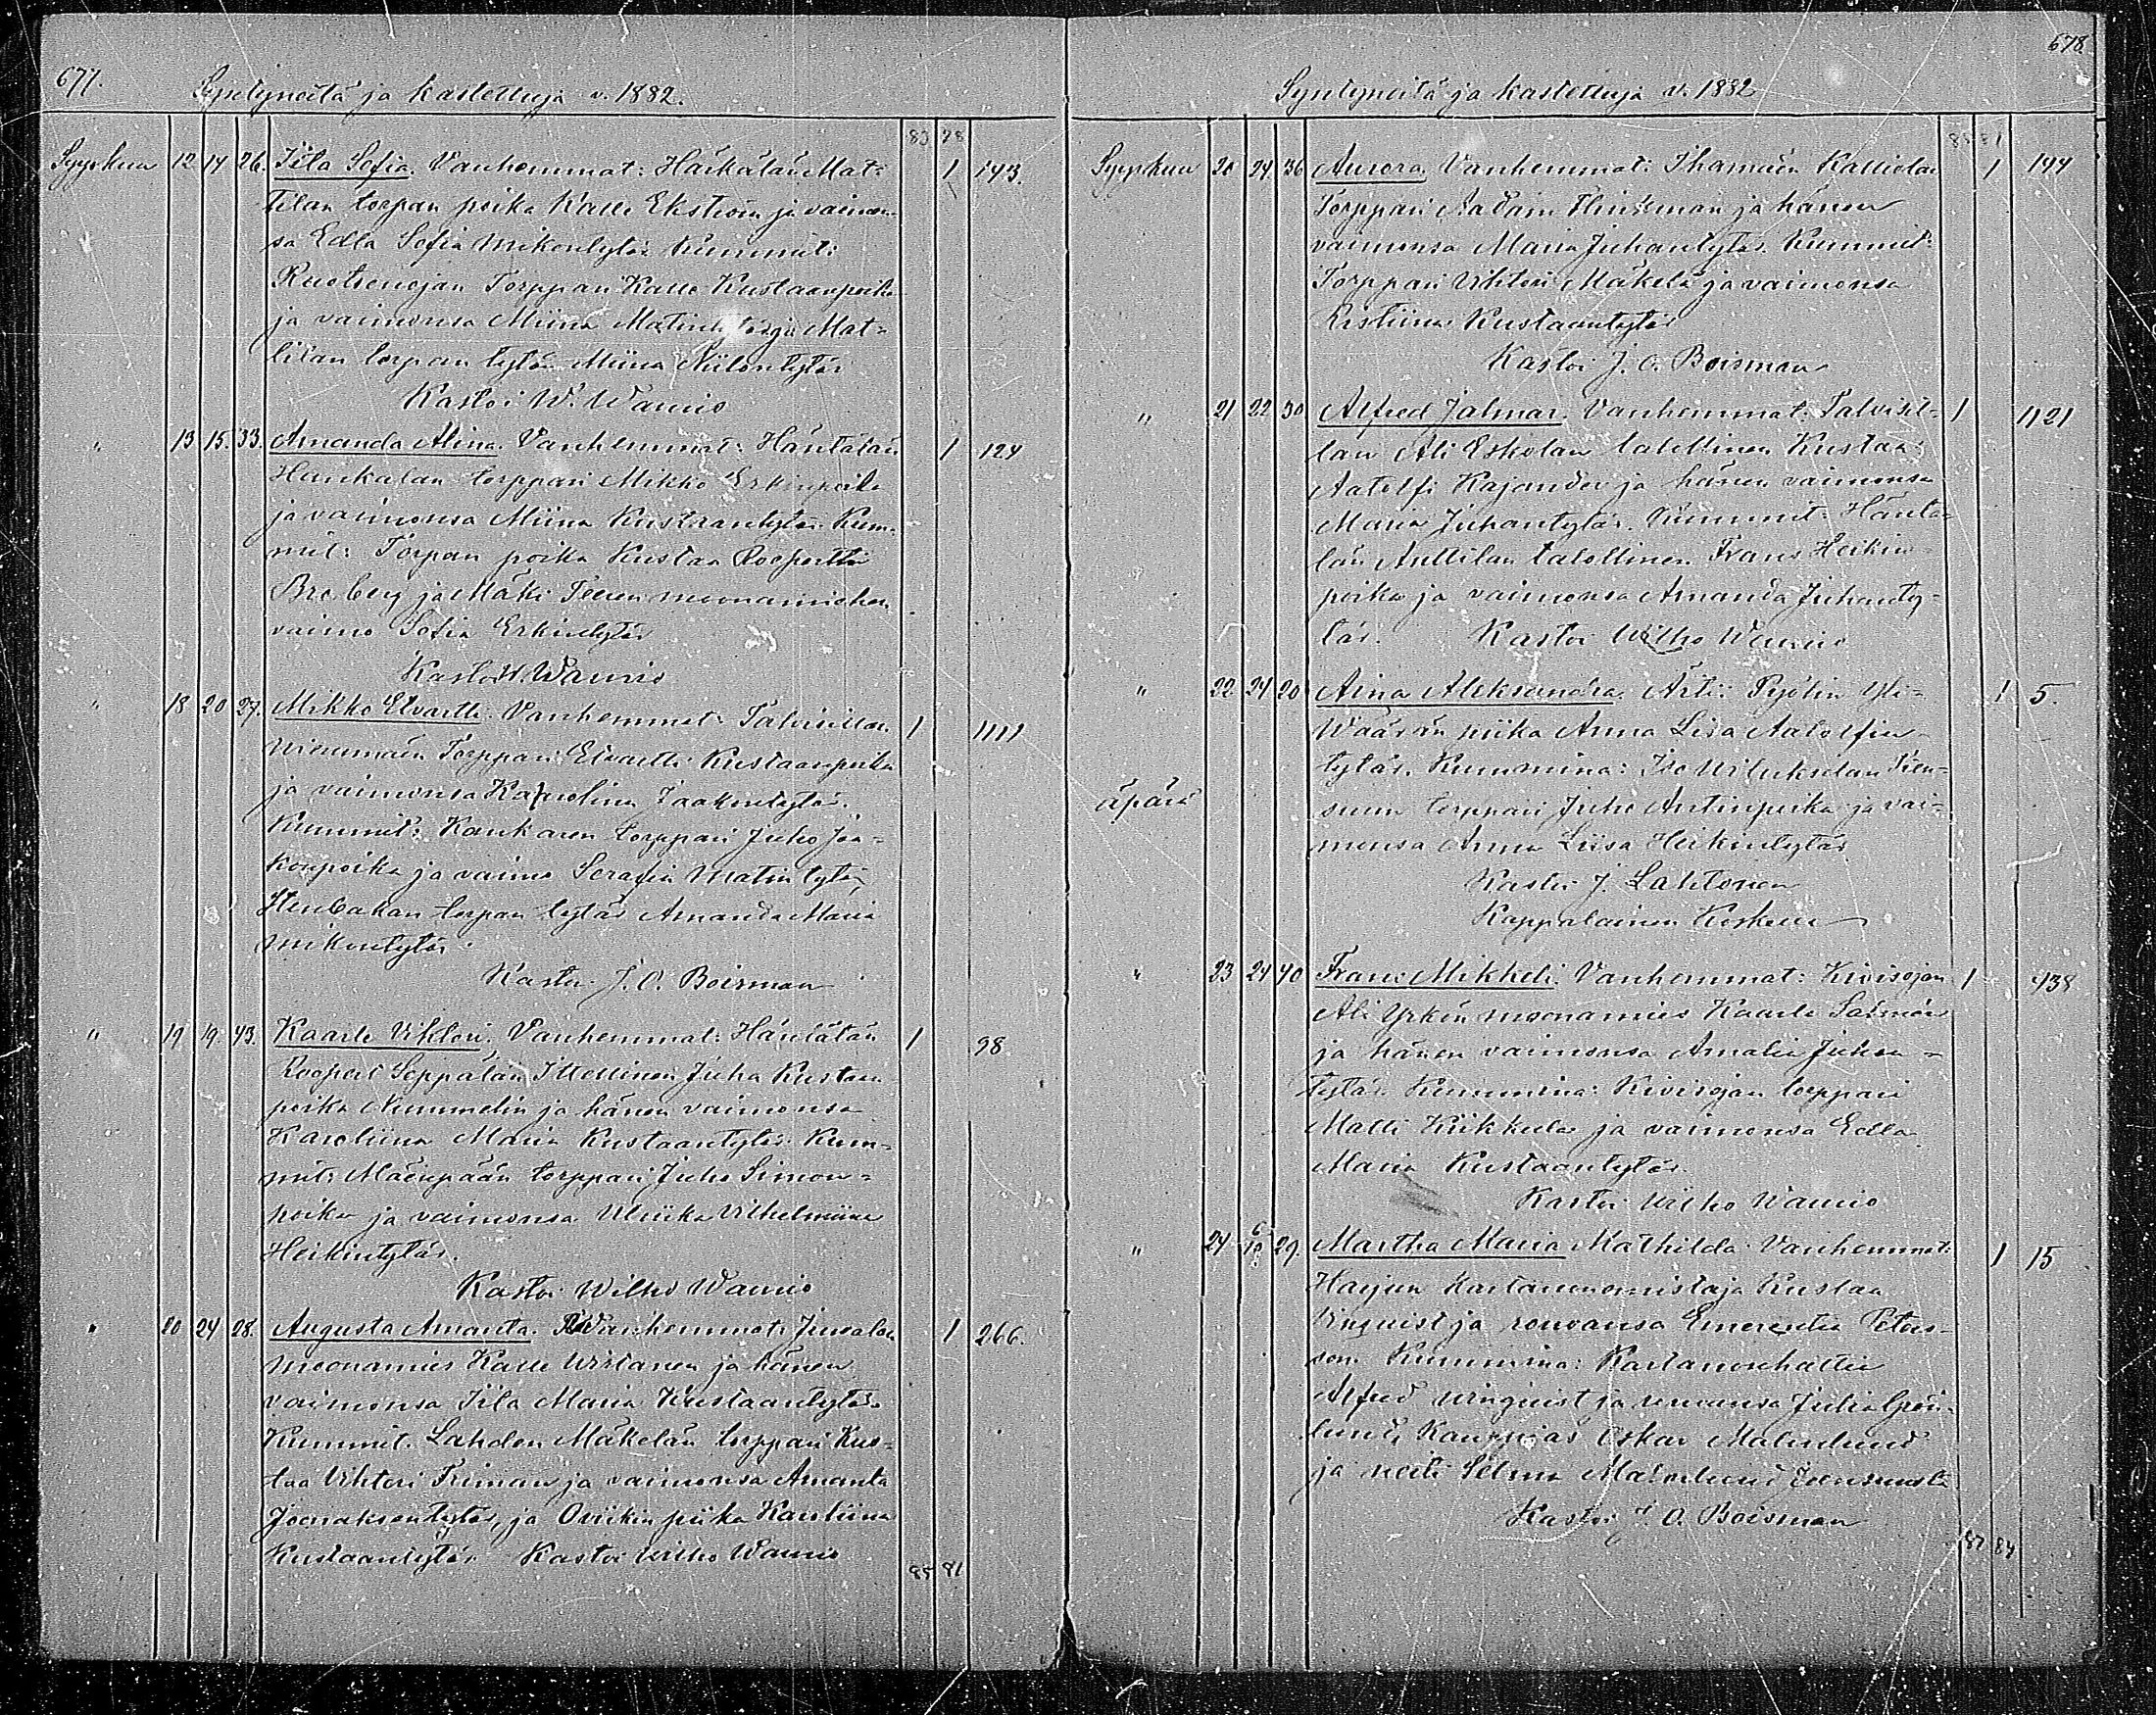 677.
Syntyneitä ja kastettuja v. 1882.
83 78
Syyskuu 12 14 26. Iita Sofia. Vanhemmat: Härkälän Mat- 1 143.
tilan torpan poika Kalle Ekström ja vaimon-
sa Edla Sofia Mikontytär Kummit:
Ruotsenojan Torppari Kalle Kustaanpoika
ja vaimonsa Miina Matintytär ja Mat-
tilan torpan tytär Miina Niilontytär
Kastoi W. Waunio
" 13 15. 33. Amanda Alina. Vanhemmat: Häntälän 1 124
Haukalan torppari Mikko Erkinpoika
ja vaimonsa Miina Kustaantytär. Kum-
mit: Torpan poika Kustaa Roopertti
Broberg ja Mäki moonamiehen
vaimo Sofia Erkintytär
Kastoi W. Waunio
" 18 20 27. Mikko Elvartti. Vanhemmat: Talvisillan 1 1111
Torppari Elvartti Kustaanpoika
ja vaimonsa Karolina Jaakontytär.
Kummit: Kankaren torppari Juho Jaa-
konpoika ja vaimo Serafia Matintytär,
torpan tytär Amanda Maria
Mikontytär.
Kastoi J. O. Boisman
" 19 19. 43. Kaarle Viktori. Vanhemmat: Häntälän 1 98
Roopert Seppälän Itsellinen Juha Kustaan-
poika Nummelin ja hänen vaimonsa
Karoliina Maria Kustaantytär. Kum-
mit: Mäenpään torppari Juho Simon-
poika ja vaimonsa Ulriika Vilhelmiina
Heikintytär.
Kastoi Wilho Waunio
" 20 24 28. Augusta Amanta. Vanhemmat: Jursalan 1 266.
moonamies Kalle Wirtanen ja hänen
vaimonsa Iita Maria Kustaantytär.
Kummit. Lahden Mäkelän torppari Kus-
taa Vihtori Friman ja vaimonsa Amanta
Joonaksentytär, ja piika Karoliina
Kustaantytär. Kastoi Wilho Waunio
85 81
678
Syntyneitä ja kastettuja v. 1882
85 81
Syyskuu 20 24 36 Aurora. Vanhemmat: Ihamäen Kalliolan 1 144
Torppari Aadam Flinkman ja hänen
vaimonsa Maria Juhantytär. Kummit:
Torppari Vihtori Mäkelä ja vaimonsa
Kristiina Kustaantytär
Kastoi J. O. Boisman
" 21 22 30 Alfred Jalmar. Vanhemmat. Talvisil- 1 1121
lan Ali Eskolan talollinen Kustaa
Aatolfi Kajander ja hänen vaimonsa
Maria Juhantytär. Kummit: Häntä-
län Anttilan talollinen Frans Heikin-
poika ja vaimonsa Amanda Juhanty-
tär. Kastoi Wilho Waunio
" 22 24 20 Aina Aleksandra. Äiti: Pyölin Yli- 1 5.
Wäärän piika Anna Lisa Aatolfin-
tytär. Kummina: Iso
äpärä
torppari Juho Antinpoika ja vai-
monsa Anna Liisa Heikintytär
Kastoi J. Lahtonen
Kappalainen Koskella
" 23 24 40 Frans Mikkeli. Vanhemmat: Kivisojan 1 438
Ali Yrkön moonamies Kaarle Salmén
ja hänen vaimonsa Amalia Juhan-
tytär. Kummina: Kivisojan torppari
Matti Kiikkula ja vaimonsa Edla
Maria Kustaantytär.
Kastoi Wilho Waunio
" 24 6/10 29. Martha Maria Mathilda. Vanhemmat: 1 15
Harjun Kartanonomistaja Kustaa
Vinquist ja rouvansa Emerentia Peters-
son. Kummina: Kartanonhaltia
Alfred Winquist ja rouvansa Julia Grön-
lund, Kauppias Oskar Malmlund
ja neiti Selma Malmlund Joensuusta
Kastoi J. O. Boisman
87 84